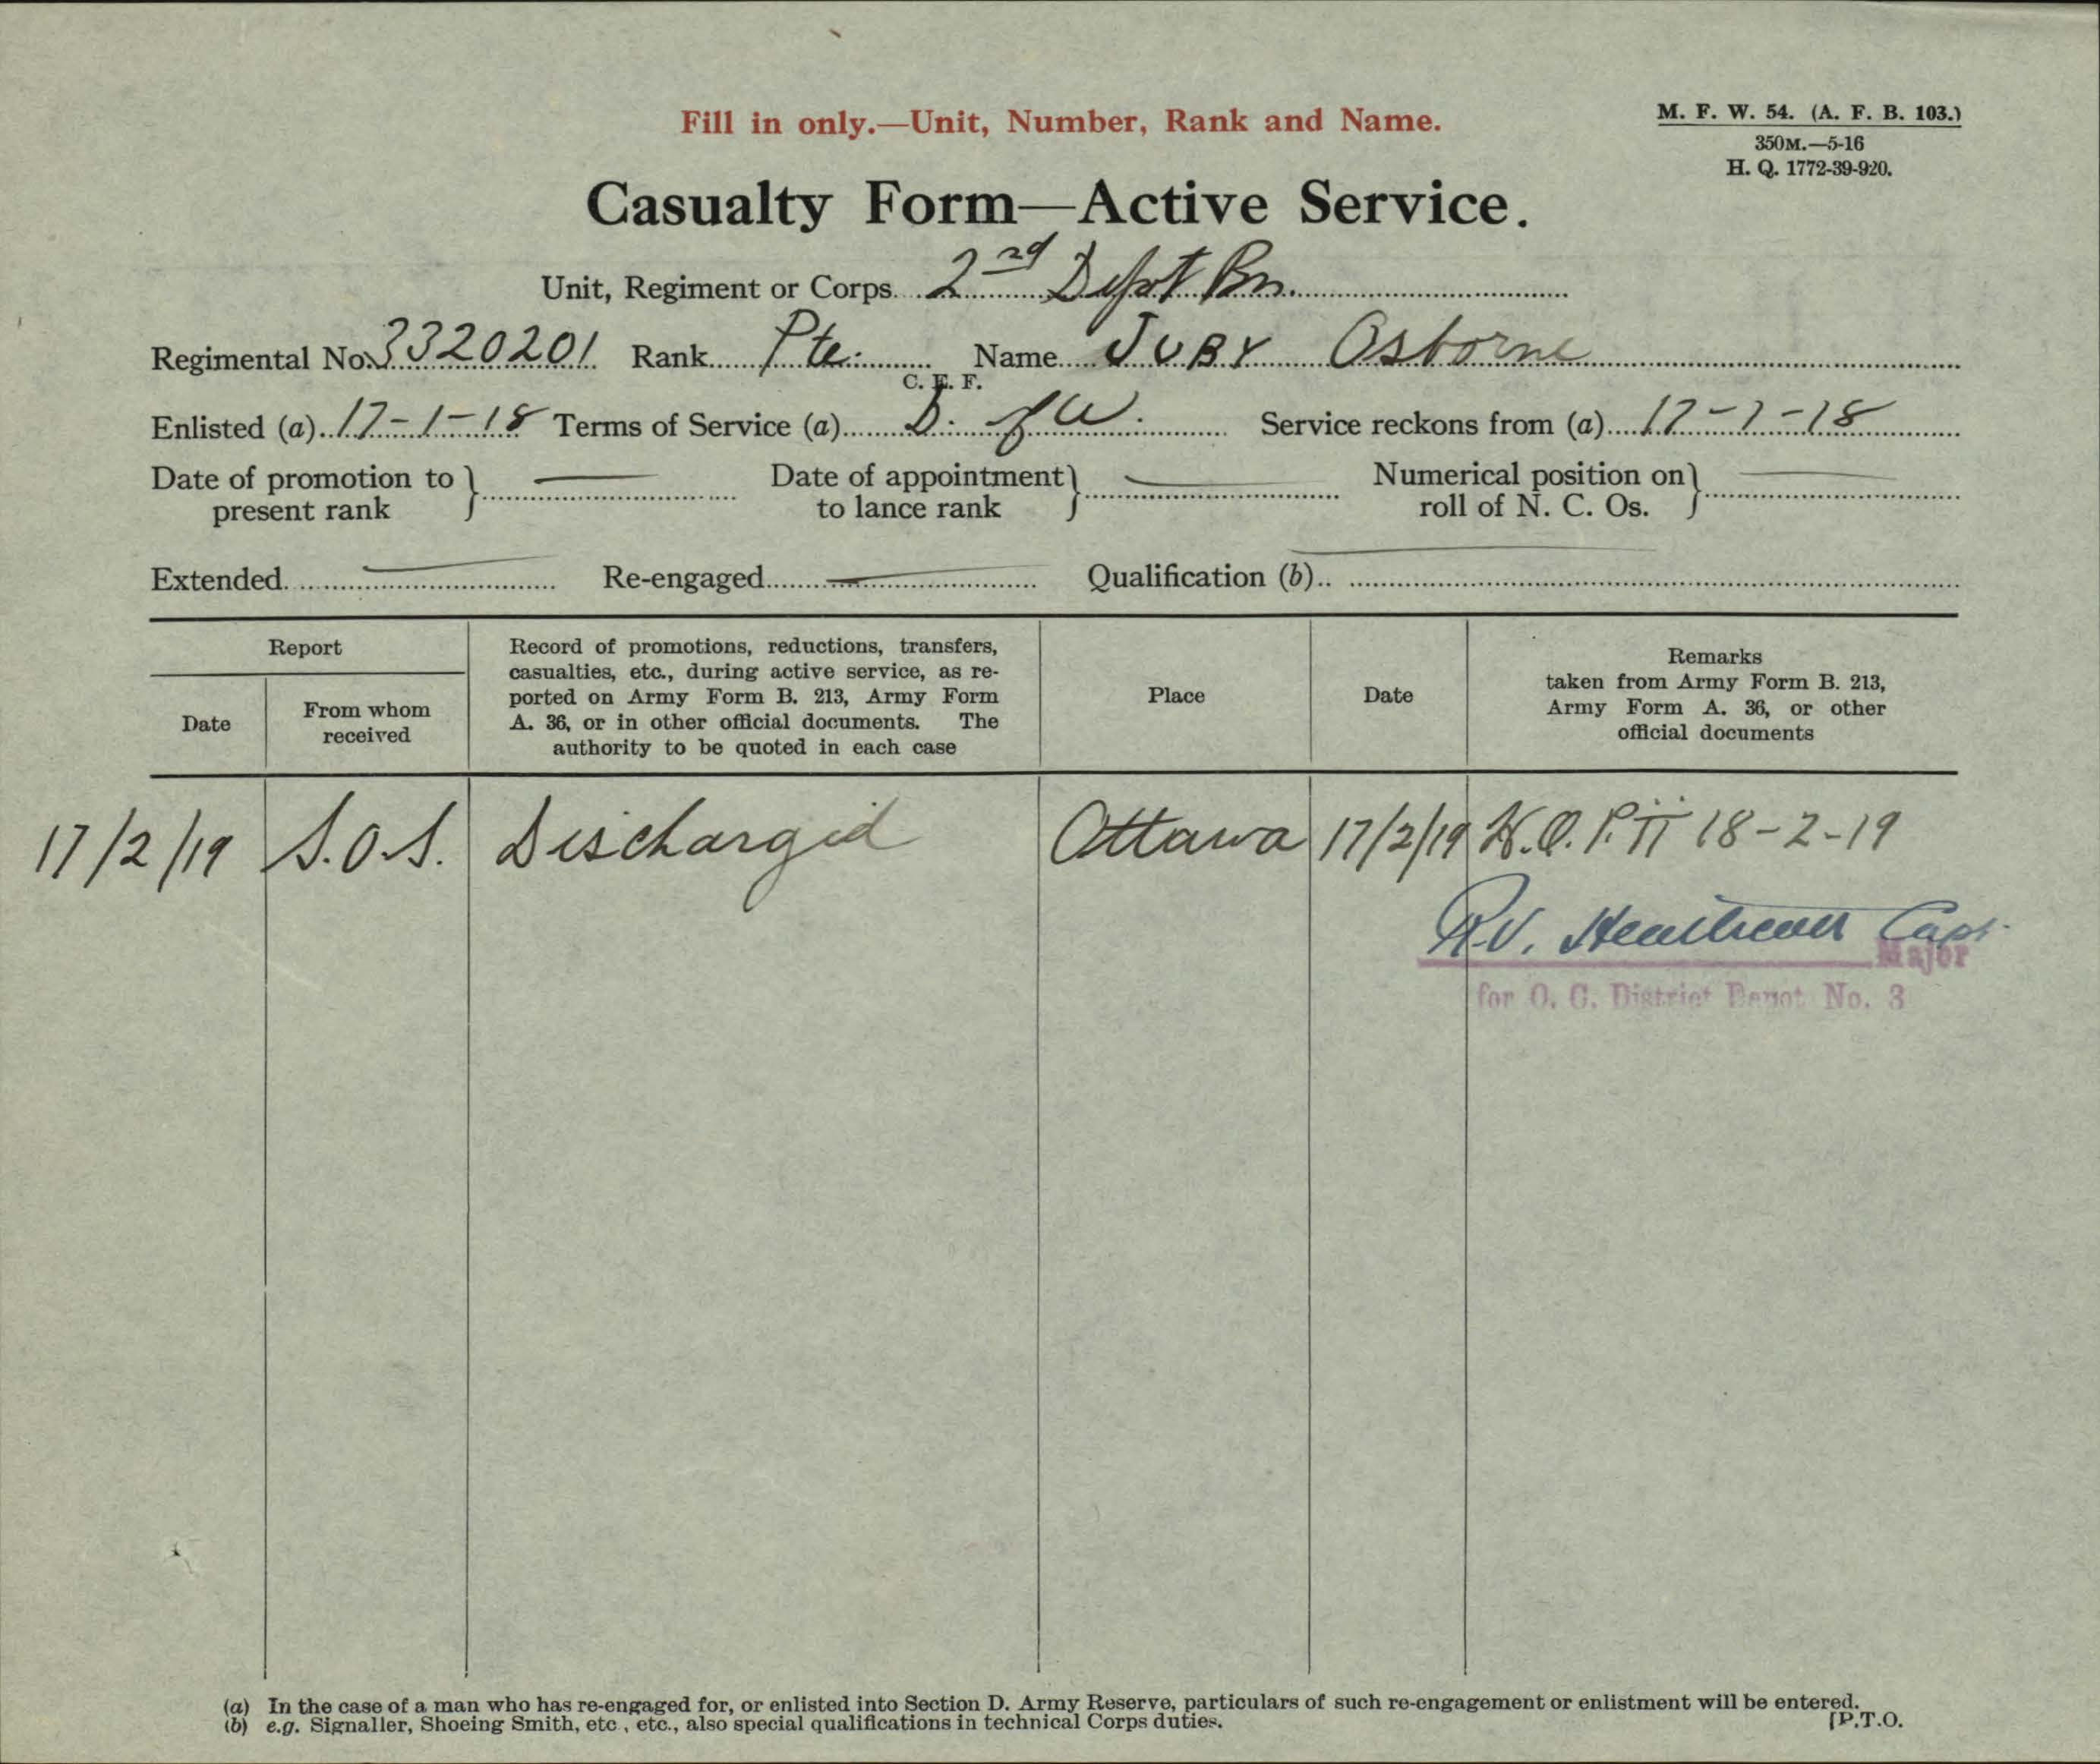 Fill in only.—Unit, Number, Rank and Name.
M. F. W. 54. (A. F. B. 103.)
350M.—5-16
H. Q. 1772-39-920.
Casualty Form—Active Service.
Unit, Regiment or Corps 2nd Depot Bn.
Regimental No. 3320201 Rank Pte. Name JUBY Osborne
C. E. F.
Enlisted (a) 17-1-18 Terms of Service (a) D. of W. Service reckons from (a) 17-1-18
Date of promotion to present rank — Date of appointment to lance rank — Numerical position on roll of N. C. Os. —
Extended — Re-engaged — Qualification (b) —
Report
Date
From whom received
Record of promotions, reductions, transfers,
casualties, etc., during active service, as re-
ported on Army Form B. 213, Army Form
A. 36, or in other official documents. The
authority to be quoted in each case
Place
Date
Remarks
taken from Army Form B. 213,
Army Form A. 36, or other
official documents
17/2/19 S.O.S. Discharged Ottawa 17/2/19 H.Q. Pt II 18-2-19
R.V. Capt.
Major
for O. C. District Depot No. 3
(a) In the case of a man who has re-engaged for, or enlisted into Section D. Army Reserve, particulars of such re-engagement or enlistment will be entered.
(b) e.g. Signaller, Shoeing Smith, etc., etc., also special qualifications in technical Corps duties.
[P.T.O.